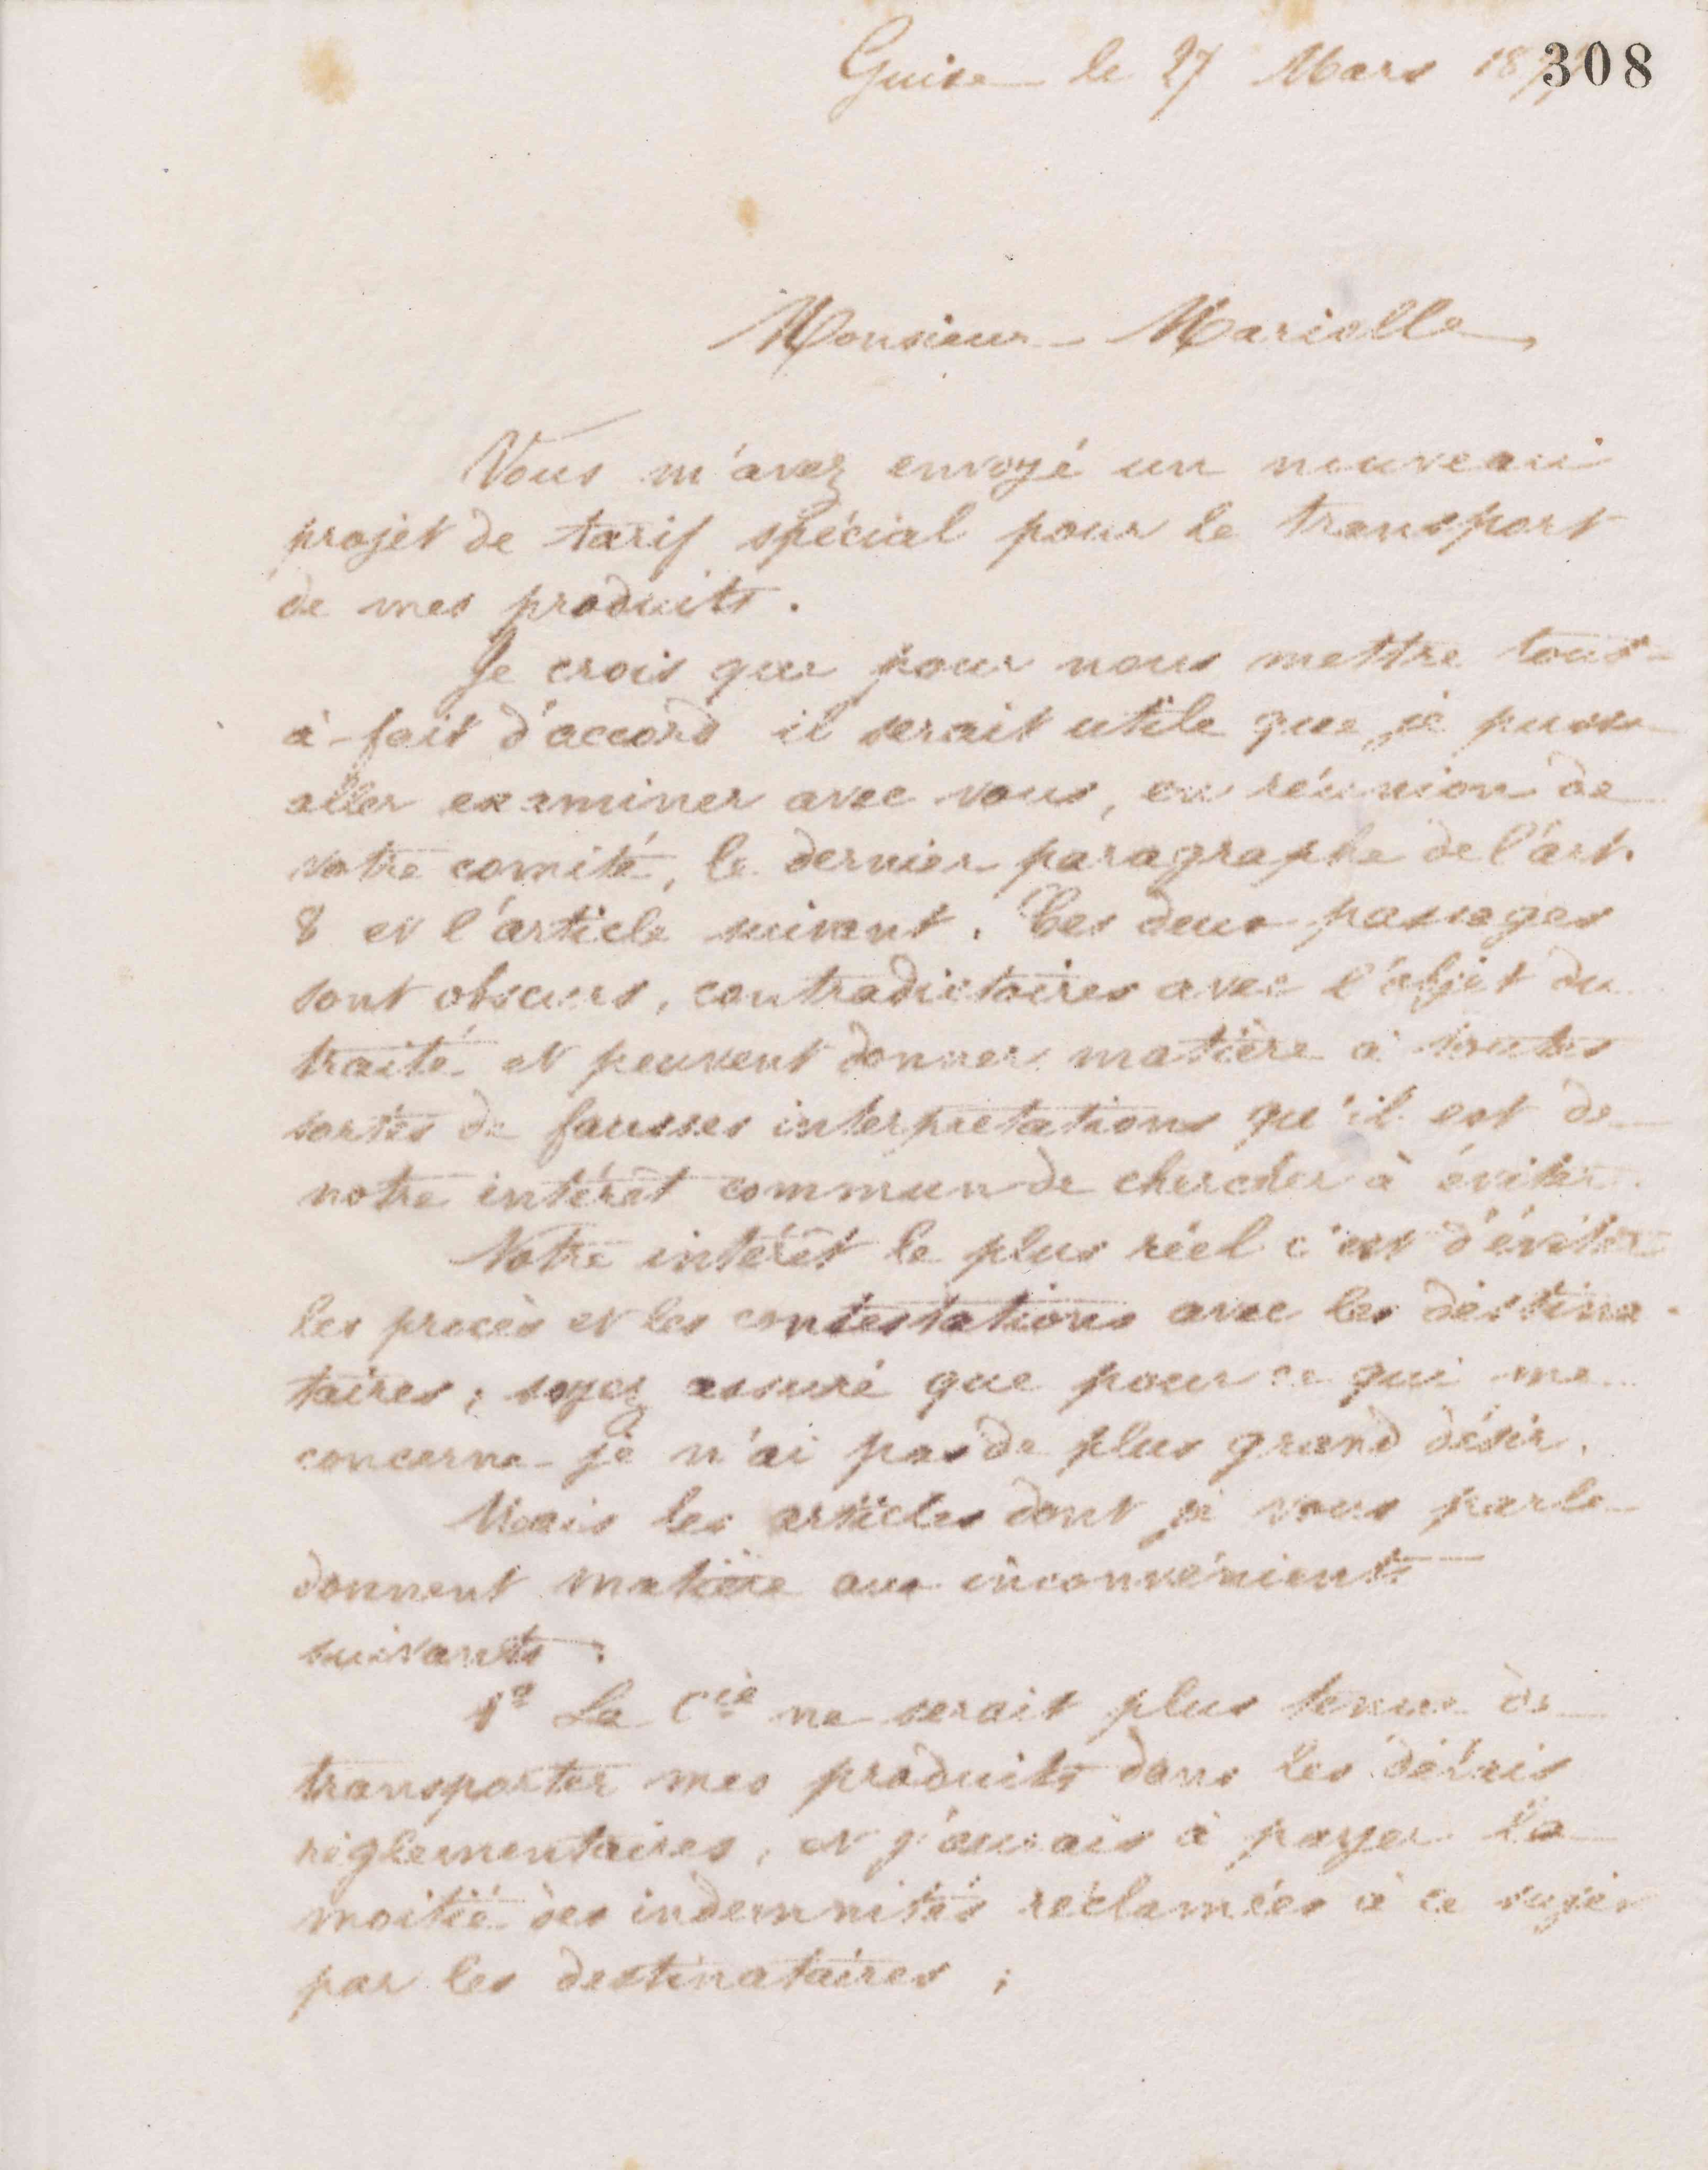 Guise le 27 Mars 187
308
Monsieur Marielle,
Vous m'avez envoyé un nouveau
projet de tarif spécial pour le transport
de mes produits.
Je crois que pour nous mettre tout-
à-fait d'accord il serait utile que je puisse
aller examiner avec vous, en réunion de
votre comité, le dernier paragraphe de l'art.
8 et l'article suivant. Ces deux passages
sont obscurs, contradictoires avec l'objet du
traité et peuvent donner matière à toutes
sortes de fausses interprétations qu'il est de
notre intérêt commun de chercher à éviter.
Notre intérêt le plus réel c'est d'éviter
les procès et les contestations avec les destina-
taires ; soyez assuré que pour ce qui me
concerne je n'ai pas de plus grand désir.
Mais les articles dont je vous parle
donnent matière aux inconvénients
suivants :
1º La Cie ne serait plus tenue de
transporter mes produits dans les délais
réglementaires, et j'aurais à payer la
moitié des indemnités réclamées à ce sujet
par les destinataires ;